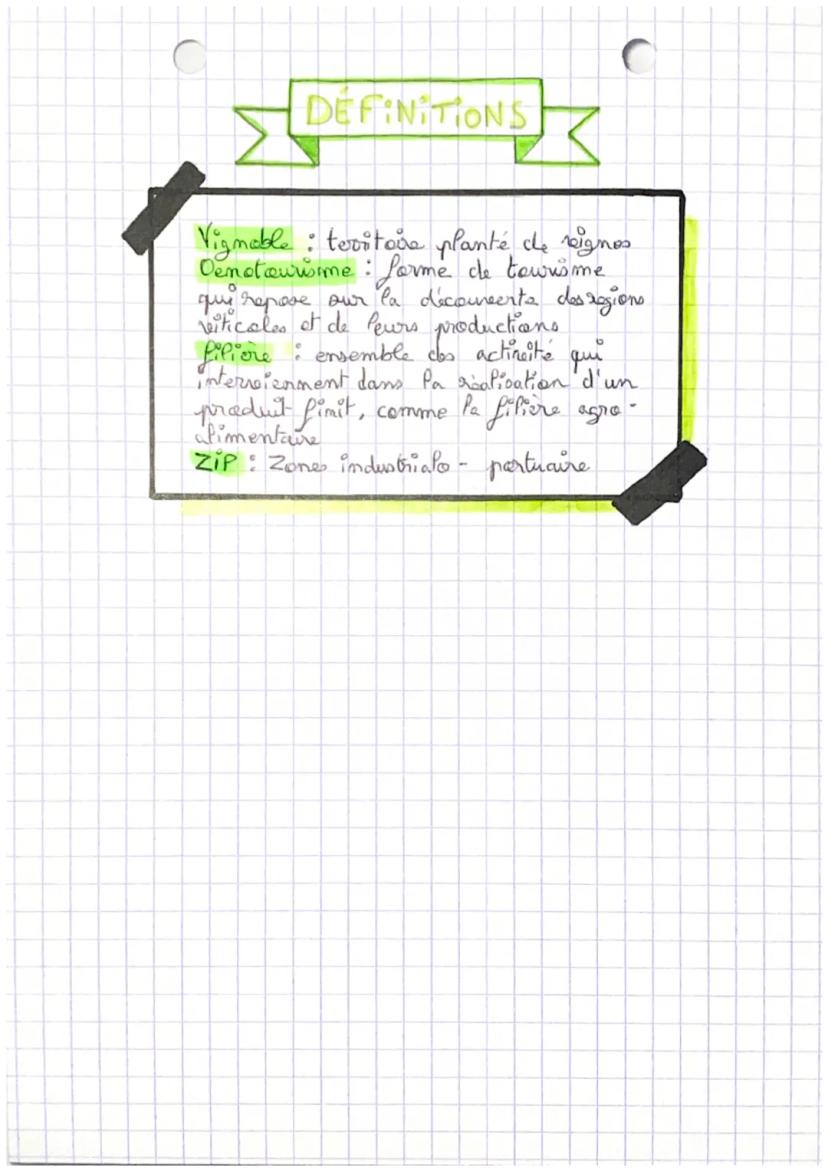 DÉFiNiTiONS
Vignoble : territoire planté de vignes
Oenotourisme : forme de tourisme
qui repose sur la découverte des régions
viticoles et de leurs productions
filière : ensemble des activité qui
interviennent dans la réalisation d'un
produit finit, comme la filière agro-
alimentaire
ZiP : Zones industrialo - portuaire